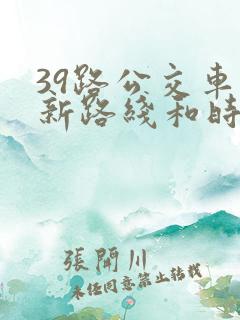 39路公交車
新路綫和時
張開川
未任同意禁止转载